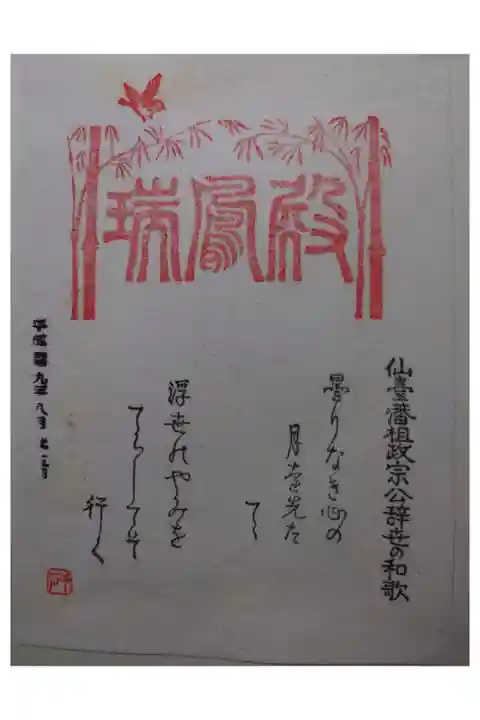 瑞鳳殿
仙臺藩祖政宗公辞世の和歌
曇りなき心の
月を先た
てて
浮世のやみを
てらしてぞ
行く
平成 九年八月